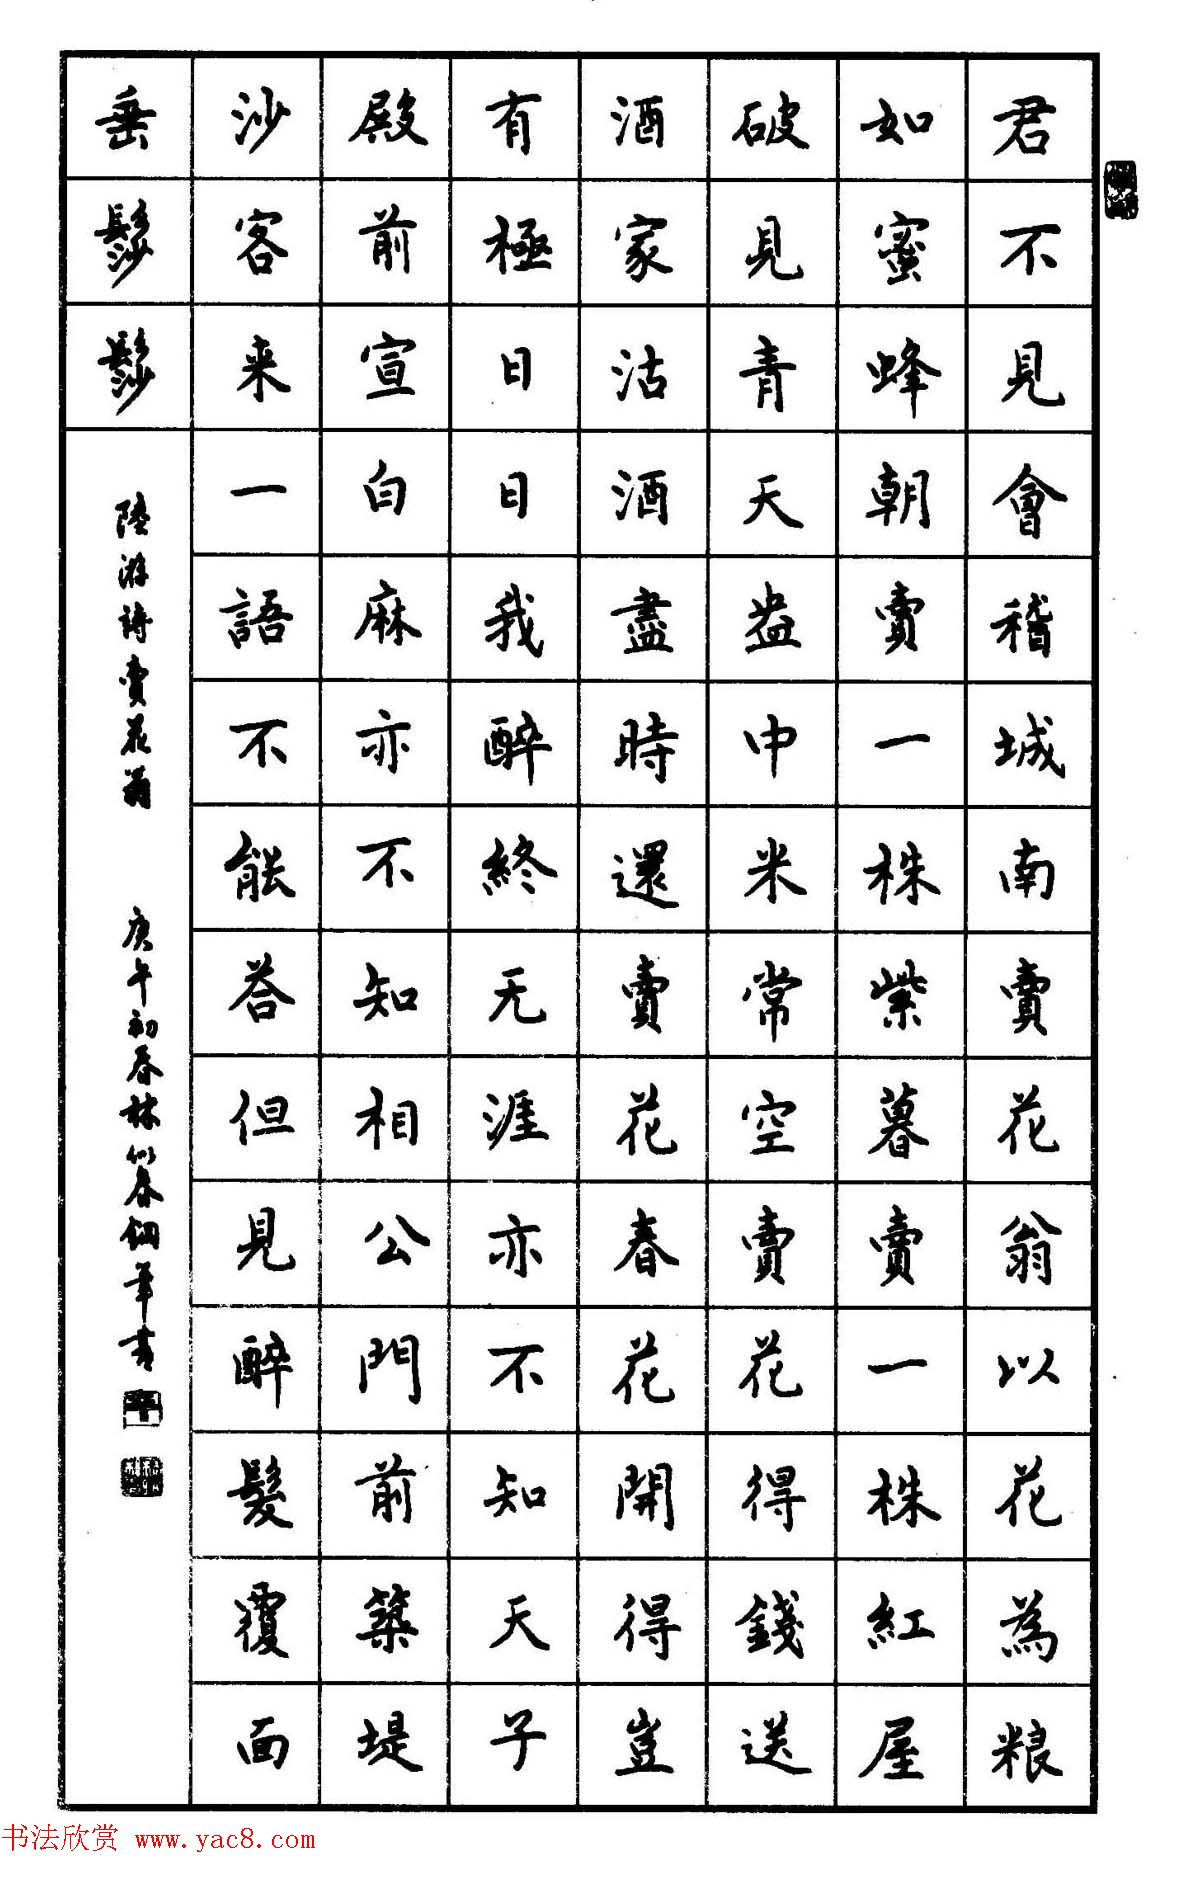 君不見會稽城南賣花翁以花為粮
如蜜蜂朝賣一株紫暮賣一株紅屋
破見青天盎中米常空賣花得錢送
酒家沽酒盡時還賣花春花開得豈
有極日日我醉終无涯亦不知天子
殿前宣白麻亦不知相公門前築堤
沙客来一語不能答但見醉髮覆面
垂髿髿
陸游詩賣花翁 庚午初春林似春鋼筆書
书法欣赏 www.yac8.com